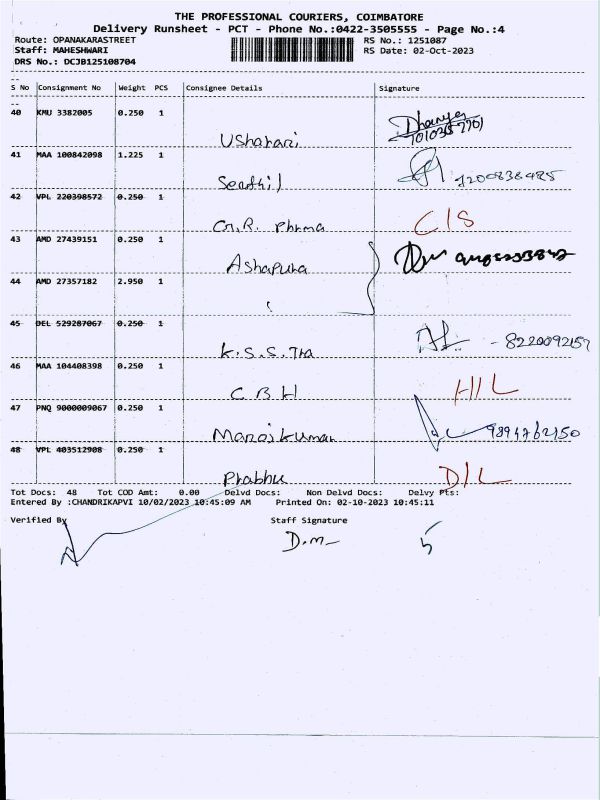 THE PROFESSIONAL COURIERS, COIMBATORE
Delivery Runsheet - PCT - Phone No.:0422-3505555 - Page No.:4
Route: OPANAKARASTREET RS No.: 1251087
Staff: MAHESHWARI RS Date: 02-Oct-2023
DRS No.: DCJB125108704
S No Consignment No Weight PCS Consignee Details Signature
40 KMU 3382005 0.250 1
Dhanya
Usharani
41 MAA 100842098 1.225 1
Senthil 7200838485
42 VPL 220398572 0.250 1
G.R. Pharma C/S
43 AMD 27439151 0.250 1
Ashapura
44 AMD 27357182 2.950 1
45 DEL 529287067 0.250 1
K.S.S. Tra - 8220092157
46 MAA 104408398 0.250 1
C B H H/L
47 PNQ 9000009067 0.250 1
Manojkumar 9894762150
48 VPL 403512908 0.250 1
Prabhu D/L
Tot Docs: 48 Tot COD Amt: 0.00 Delvd Docs: Non Delvd Docs: Delvy Pts:
Entered By :CHANDRIKAPVI 10/02/2023 10:45:09 AM Printed On: 02-10-2023 10:45:11
Verified By Staff Signature
D.m 5